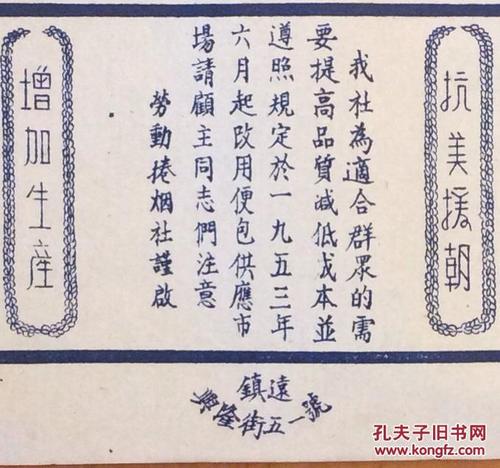 抗美援朝
我社為適合群眾的需
要提高品質减低成本並
遵照規定於一九五三年
六月起改用便包供應市
場請顧主同志們注意
勞動捲烟社謹啟
增加生產
鎮遠
興隆街五一號
孔夫子旧书网
www.kongfz.com